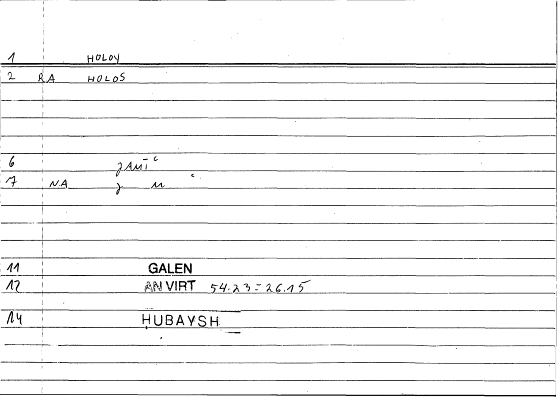 1 HOLOY
2 RA HOLOS
6 ǧAMĪʿ
7 NA ǧ M ʿ
11 GALEN
12 AN VIRT 54.23=26.15
14 HUBAYSH